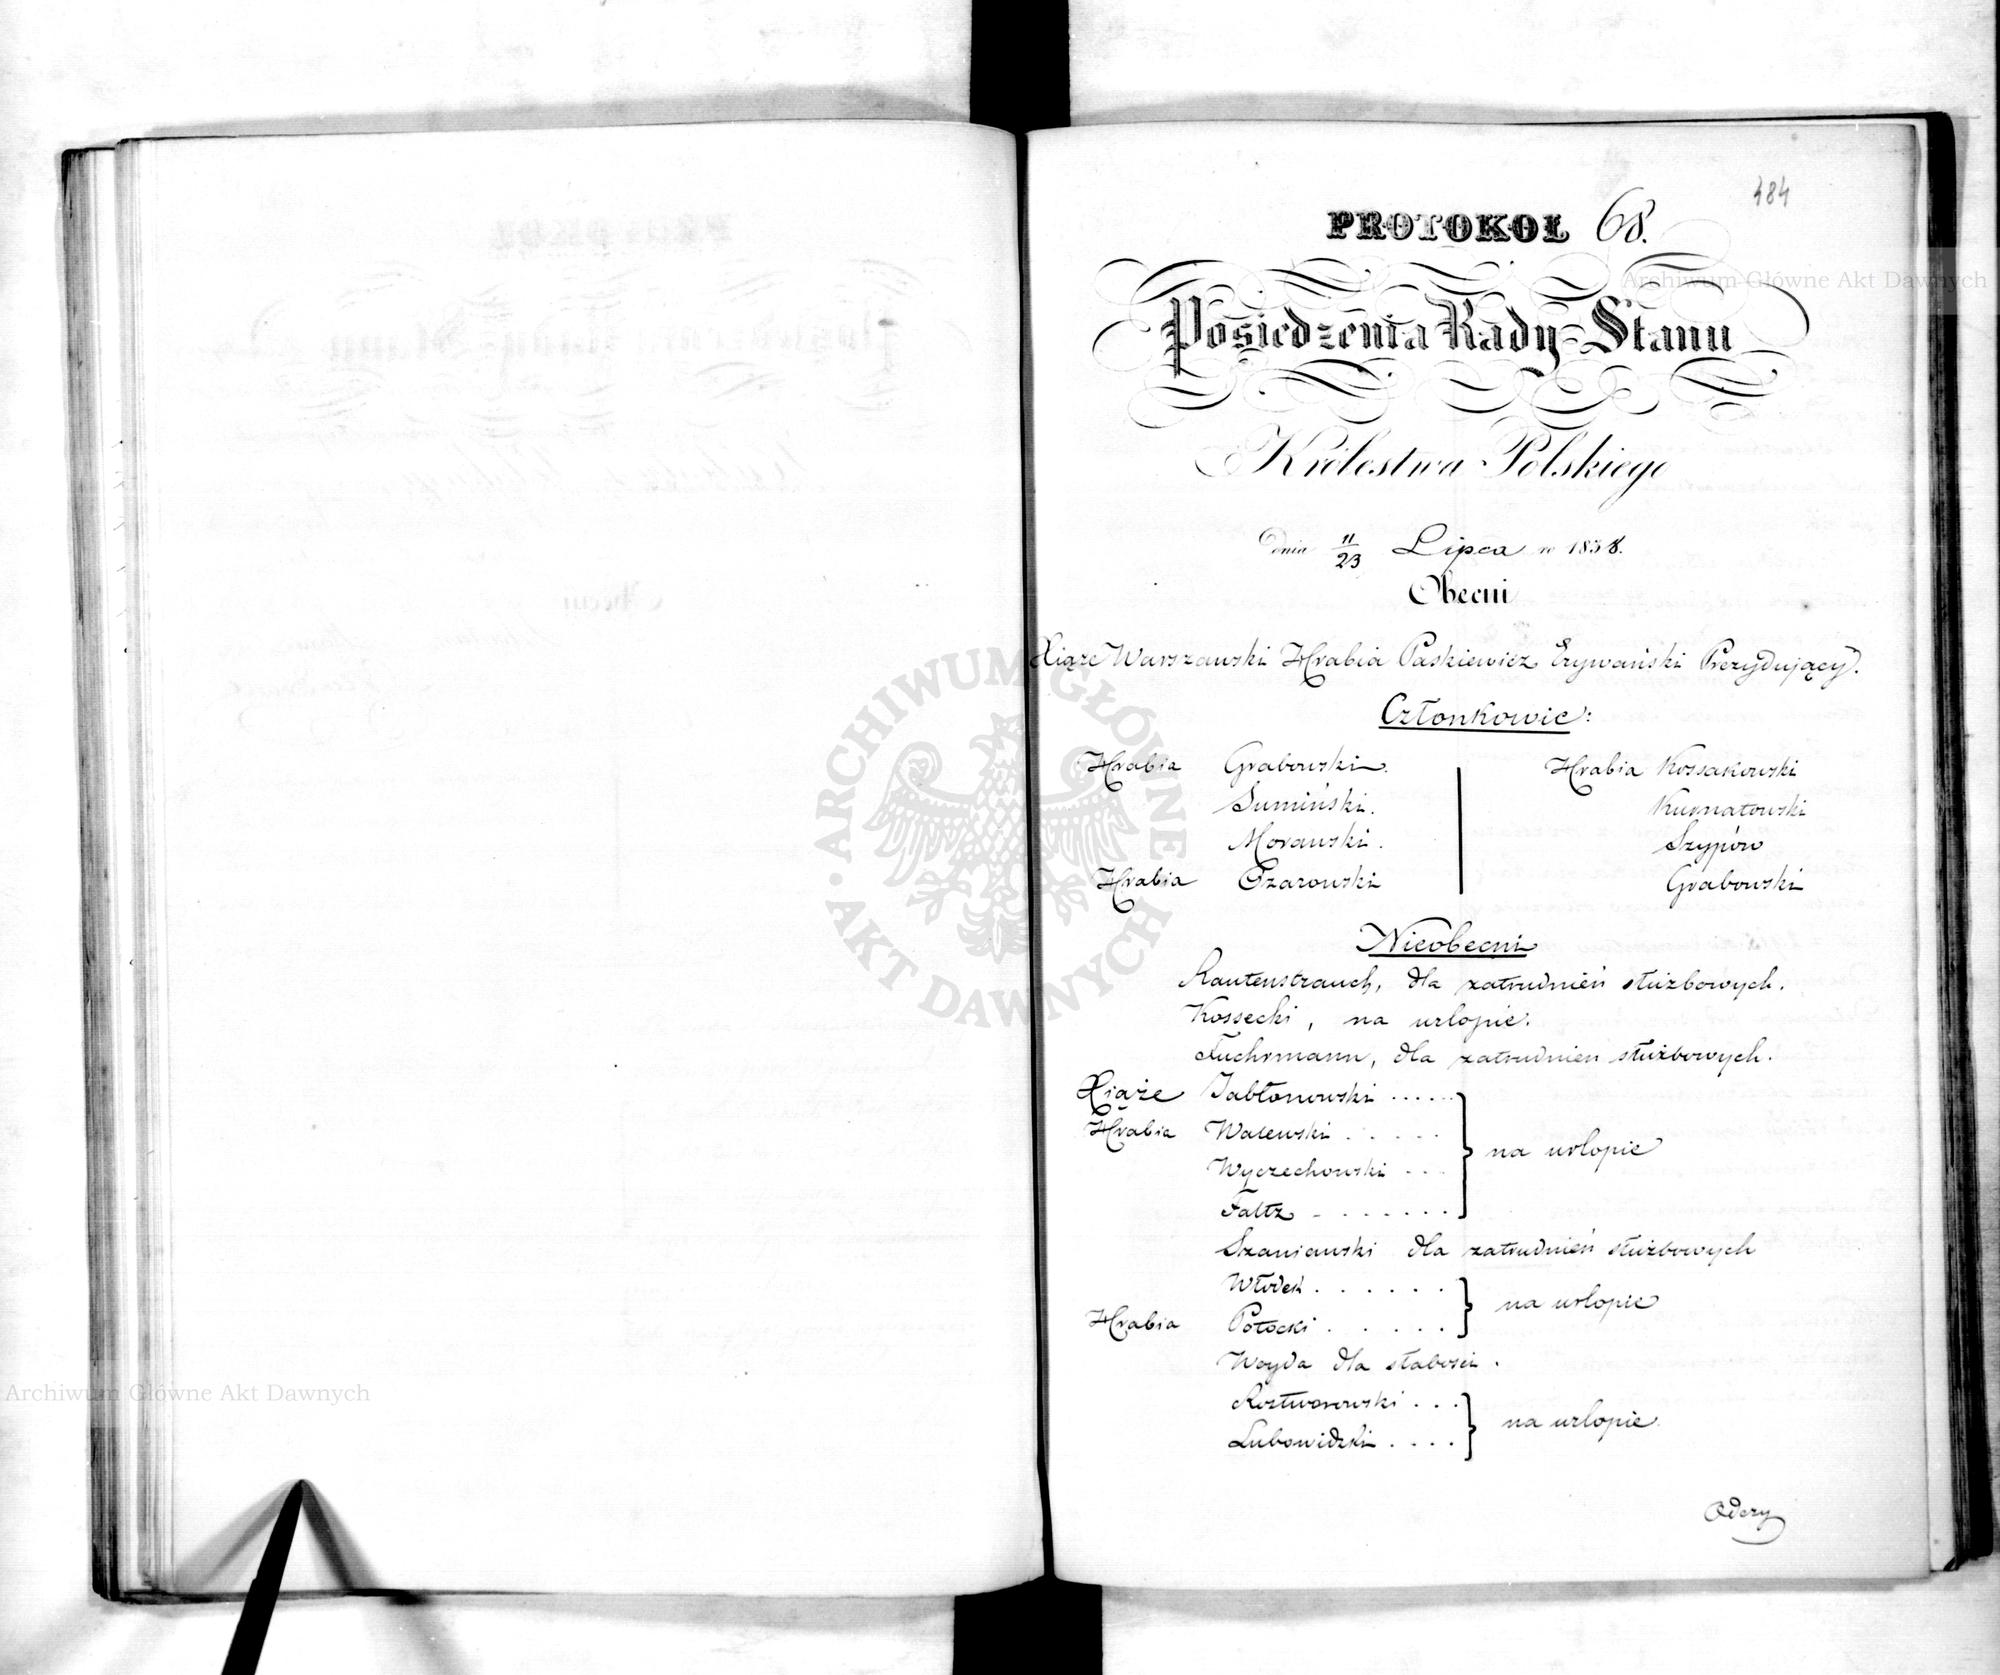 484
PROTOKOŁ 68.
Posiedzenia Rady Stanu
Królestwa Polskiego
Dnia 11/23 Lipca r. 1838.
Obecni
Xiąże Warszawski Hrabia Paskiewicz Erywański Prezydujący.
Członkowie:
Hrabia Grabowski. Hrabia Kossakowski
Sumiński. Kurnatowski
Morawski. Szypów
Hrabia Ożarowski Grabowski
Nieobecni
Rautenstrauch, dla zatrudnień służbowych.
Kossecki, na urlopie.
Fuchrmann, dla zatrudnien służbowych.
Xiąże Jabłonowski ......
Hrabia Walewski . . . . . na urlopie
Wyczechowski . . .
Faltz . . . . . . . .
Szaniawski dla zatrudnień służbowych
Włodek . . . . . . na urlopie
Hrabia Potocki . . . . .
Woyda dla słabości.
Rostworowski . . . na urlopie.
Lubowidzki . . . .
Odczy
Archiwum Główne Akt Dawnych
ARCHIWUM GŁÓWNE AKT DAWNYCH
Archiwum Główne Akt Dawnych